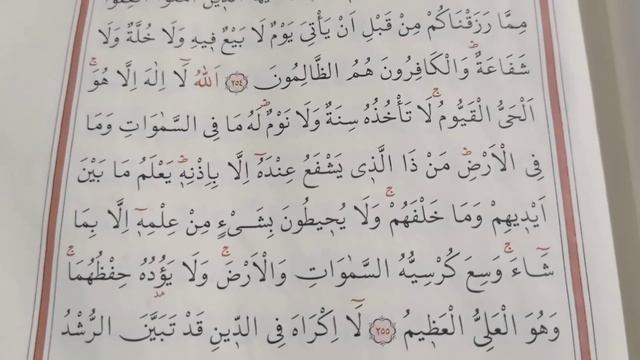 مِمَّا رَزَقْنَاكُمْ مِنْ قَبْلِ اَنْ يَأْتِيَ يَوْمٌ لَا بَيْعٌ فِيهِ وَلَا خُلَّةٌ وَلَا
شَفَاعَةٌۜ وَالْكَافِرُونَ هُمُ الظَّالِمُونَ ﴿٢٥٤﴾ اَللّٰهُ لَٓا اِلٰهَ اِلَّا هُوَۚ
اَلْحَيُّ الْقَيُّومُۚ لَا تَأْخُذُهُ سِنَةٌ وَلَا نَوْمٌۜ لَهُ مَا فِي السَّمٰوَاتِ وَمَا
فِي الْاَرْضِۜ مَنْ ذَا الَّذ۪ي يَشْفَعُ عِنْدَهُٓ اِلَّا بِاِذْنِه۪ۜ يَعْلَمُ مَا بَيْنَ
اَيْد۪يهِمْ وَمَا خَلْفَهُمْۚ وَلَا يُح۪يطُونَ بِشَيْءٍ مِنْ عِلْمِه۪ٓ اِلَّا بِمَا
شَٓاءَۚ وَسِعَ كُرْسِيُّهُ السَّمٰوَاتِ وَالْاَرْضَۚ وَلَا يَؤُ۫دُهُ حِفْظُهُمَاۚ
وَهُوَ الْعَلِيُّ الْعَظ۪يمُ ﴿٢٥٥﴾ لَٓا اِكْرَاهَ فِي الدّ۪ينِ قَدْ تَبَيَّنَ الرُّشْدُ